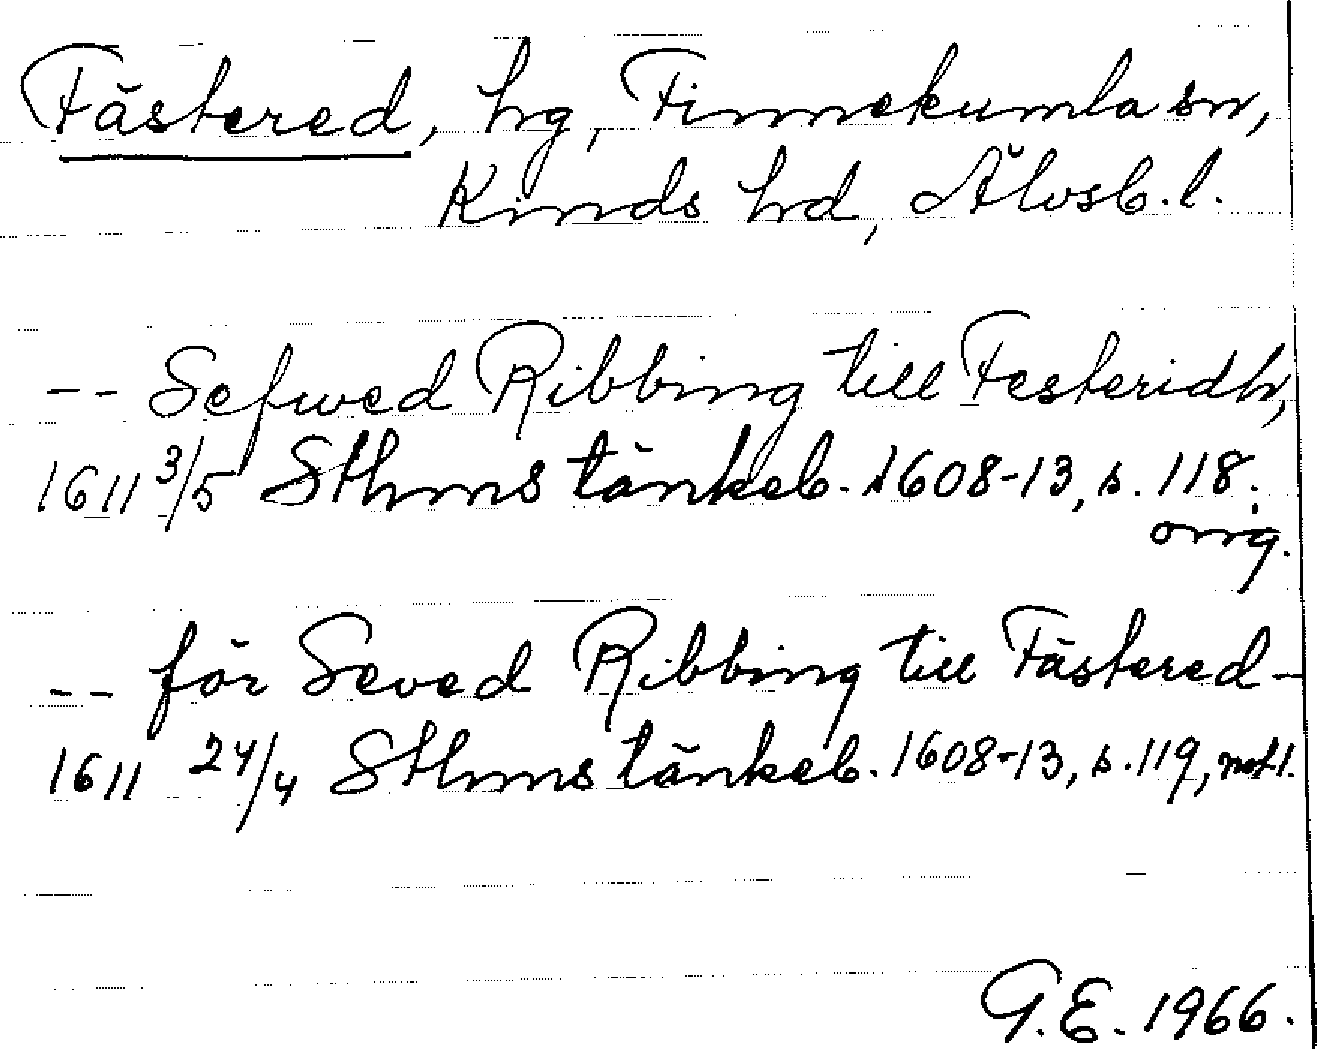 Fästered, hg, Finnekumla sn,
Kinds hd, Älvsb. l.
-- Sefwed Ribbing till Festeridh,
1611 3/5 Sthms tänkeb. 1608-13, s. 118.
orig.
-- för Seved Ribbing till Fästered -
1611 24/4 Sthms tänkeb. 1608-13, s. 119, not 1.
G.E. 1966.